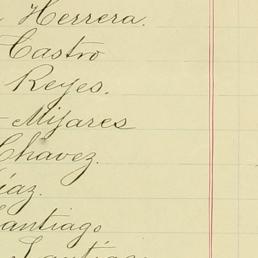 Herrera.
Castro
Reyes.
- Mijares
Chavez.
íaz.
antiago
Santiago